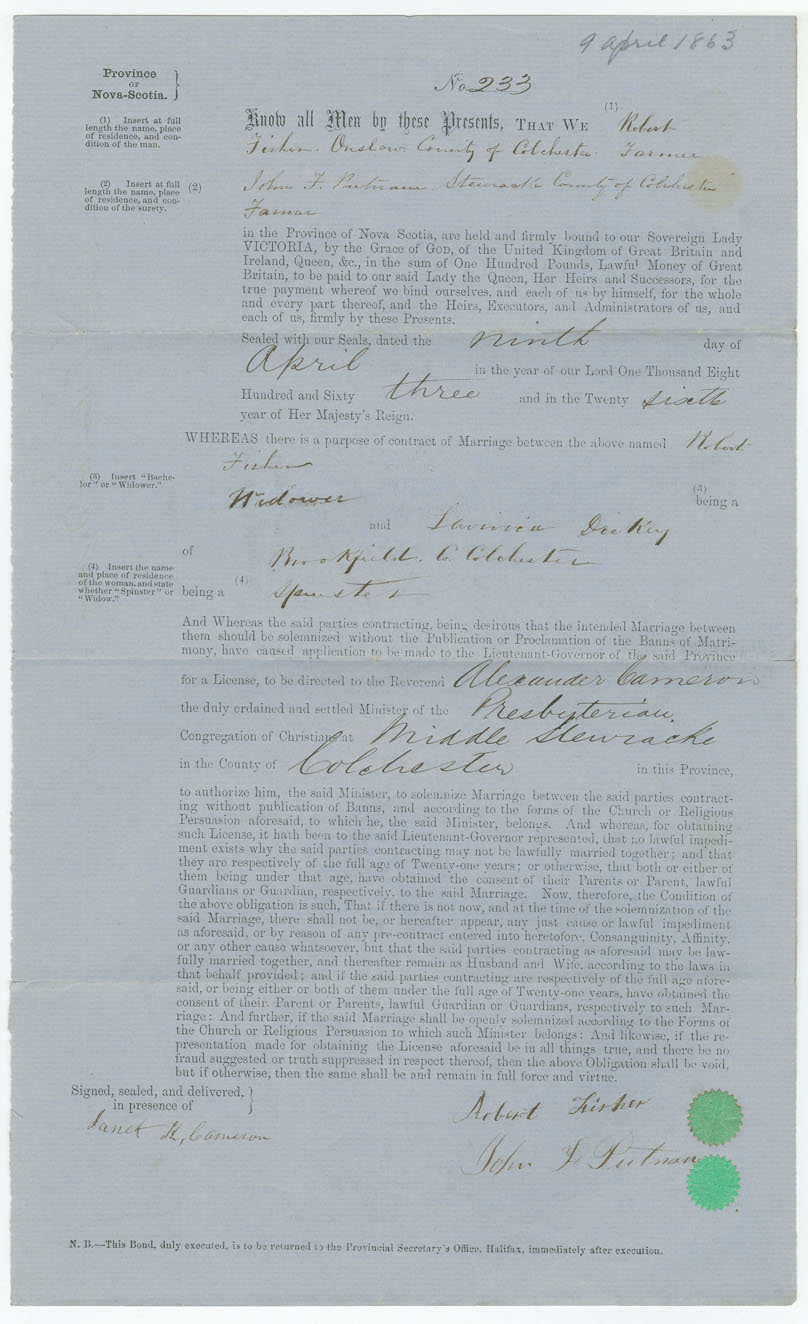 9 april 1863
Province
OF
Nova-Scotia.
No. 233
(1) Insert at full
length the name, place
of residence, and con-
dition of the man.
Know all Men by these Presents, THAT WE (1) Robert
Fisher. Onslow. County of Colchester. Farmer
(2) Insert at full
length the name, place
of residence, and con-
dition of the surety.
(2) John F. Putnam Stewiack County of Colchester
Farmer
in the Province of Nova Scotia, are held and firmly bound to our Sovereign Lady
VICTORIA, by the Grace of GOD, of the United Kingdom of Great Britain and
Ireland, Queen, &c., in the sum of One Hundred Pounds, Lawful Money of Great
Britain, to be paid to our said Lady the Queen, Her Heirs and Successors, for the
true payment whereof we bind ourselves, and each of us by himself, for the whole
and every part thereof, and the Heirs, Executors, and Administrators of us, and
each of us, firmly by these Presents.
Sealed with our Seals, dated the ninth day of
April in the year of our Lord One Thousand Eight
Hundred and Sixty three and in the Twenty sixth
year of Her Majesty's Reign.
WHEREAS there is a purpose of contract of Marriage between the above named Robert
Fisher
(3) Insert "Bache-
lor" or "Widower."
(3) being a
Widower
and Lavinia Dickey
of Brookfield. Co Colchester
(4) Insert the name
and place of residence
of the woman, and state
whether "Spinster" or
"Widow."
being a (4) Spinster
And Whereas the said parties contracting, being desirous that the intended Marriage between
them should be solemnized without the Publication or Proclamation of the Banns of Matri-
mony, have caused application to be made to the Lieutenant-Governor of the said Province
for a License, to be directed to the Reverend Alexander Cameron
the duly ordained and settled Minister of the Presbyterian
Congregation of Christians at Middle Stewiacke
in the County of Colchester in this Province,
to authorize him, the said Minister, to solemnize Marriage between the said parties contract-
ing without publication of Banns, and according to the forms of the Church or Religious
Persuasion aforesaid, to which he, the said Minister, belongs. And whereas, for obtaining
such License, it hath been to the said Lieutenant-Governor represented, that no lawful impedi-
ment exists why the said parties contracting may not be lawfully married together; and that
they are respectively of the full age of Twenty-one years; or otherwise, that both or either of
them being under that age, have obtained the consent of their Parents or Parent, lawful
Guardians or Guardian, respectively, to the said Marriage. Now, therefore, the Condition of
the above obligation is such, That if there is not now, and at the time of the solemnization of the
said Marriage, there shall not be, or hereafter appear, any just cause or lawful impediment
as aforesaid, or by reason of any pre-contract entered into heretofore, Consanguinity, Affinity,
or any other cause whatsoever, but that the said parties contracting as aforesaid may be law-
fully married together, and thereafter remain as Husband and Wife, according to the laws in
that behalf provided; and if the said parties contracting are respectively of the full age afore-
said, or being either or both of them under the full age of Twenty-one years, have obtained the
consent of their Parent or Parents, lawful Guardian or Guardians, respectively to such Mar-
riage: And further, if the said Marriage shall be openly solemnized according to the Forms of
the Church or Religious Persuasion to which such Minister belongs: And likewise, if the re-
presentation made for obtaining the License aforesaid be in all things true, and there be no
fraud suggested or truth suppressed in respect thereof, then the above Obligation shall be void,
but if otherwise, then the same shall be and remain in full force and virtue.
Signed, sealed, and delivered,
in presence of
Janet H, Cameron
Robert Fisher
John F Putnam
N. B.—This Bond, duly executed, is to be returned to the Provincial Secretary's Office, Halifax, immediately after execution.